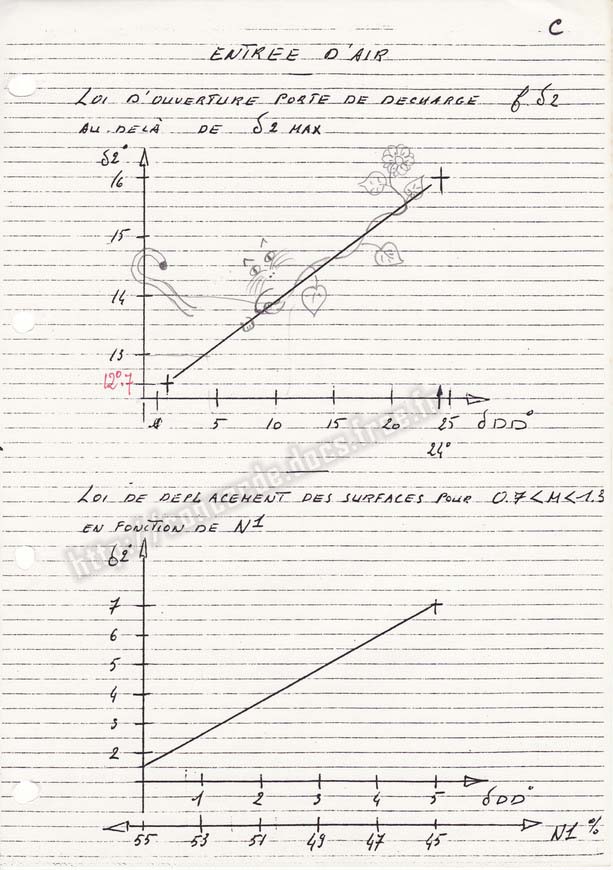 C
ENTREE D'AIR
LOI D'OUVERTURE PORTE DE DECHARGE f. δ2
AU.DELÀ DE δ2 MAX
δ2°
16
15
14
13
12°.7
5 10 15 20 25 δDD°
24°
LOI DE DEPLACEMENT DES SURFACES POUR 0.7<M<1.3
EN FONCTION DE N1
δ2°
7
6
5
4
3
2
1 2 3 4 5 δDD°
55 53 51 49 47 45 N1 %